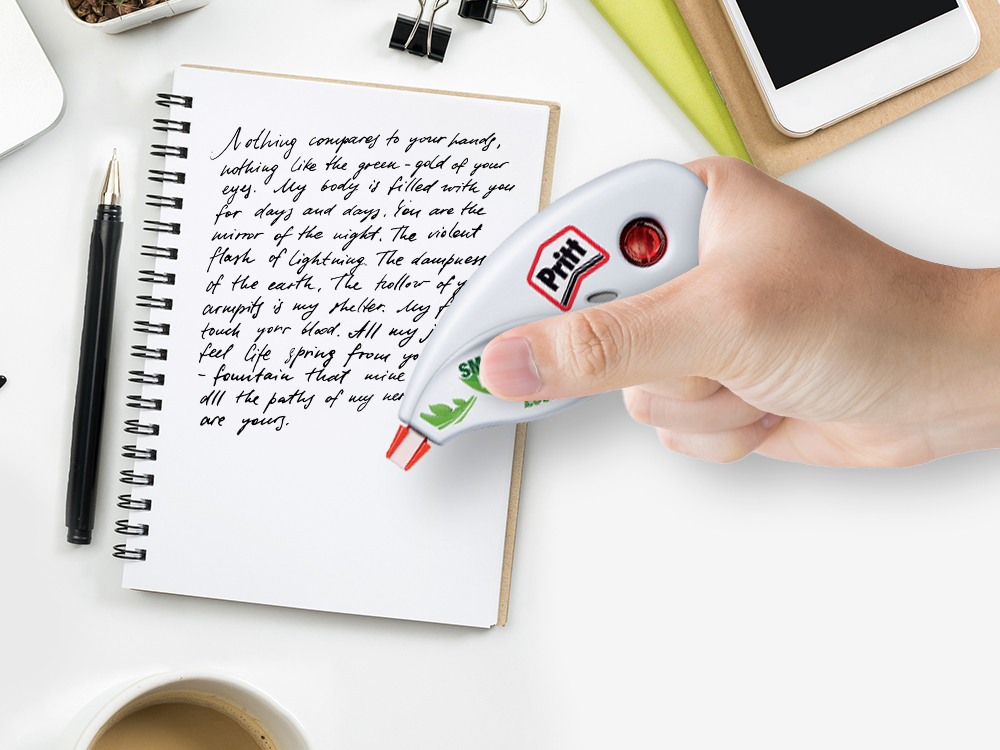 Nothing compares to your hands,
nothing like the green-gold of your
eyes. My body is filled with you
for days and days. You are the
mirror of the night. The violent
flash of lightning. The dampness
of the earth. The hollow of y
armpits is my shelter. My f
touch your blood. All my j
feel life spring from yo
-fountain that mine
all the paths of my ner
are yours.
Pritt
SM